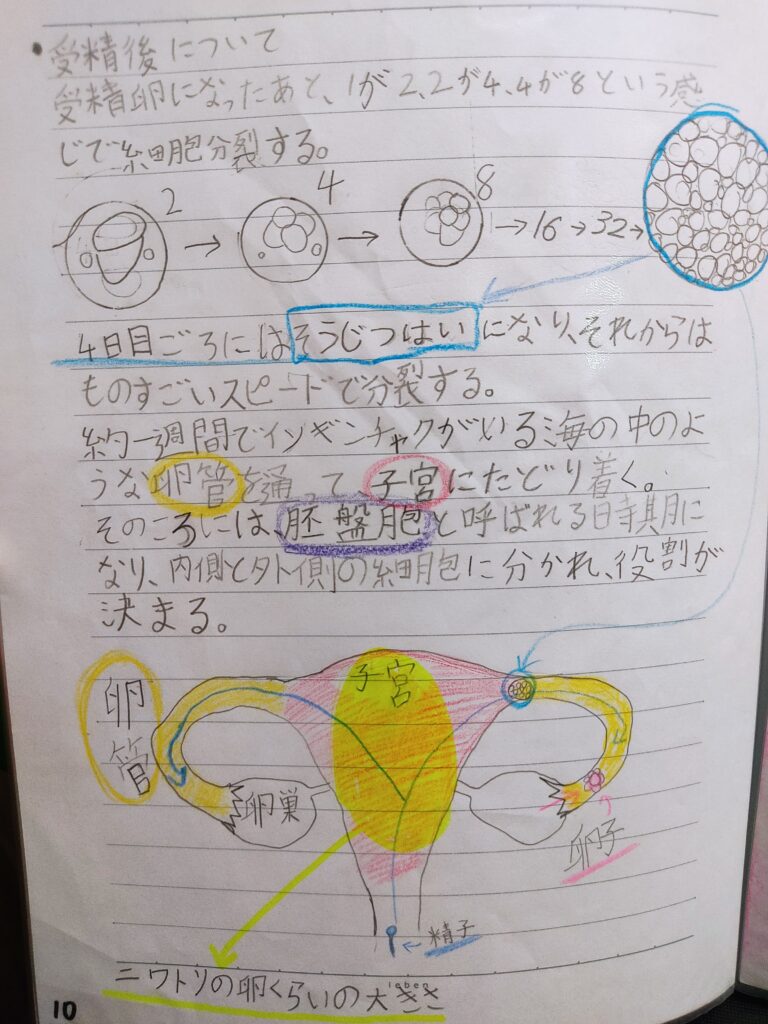 ・受精後について
受精卵になったあと、1が2、2が4、4が8という感
じで細胞分裂する。
2
4
8
→16→32→
4日目ごろにはそうじつはいになり、それからは
ものすごいスピードで分裂する。
約一週間でイソギンチャクがいる海の中のよ
うな卵管を通って、子宮にたどり着く。
そのころには、胚盤胞と呼ばれる時期に
なり、内側と外側の細胞に分かれ、役割が
決まる。
子宮
卵管
卵巣
卵子
←精子
ニワトリの卵くらいの大きさ
10